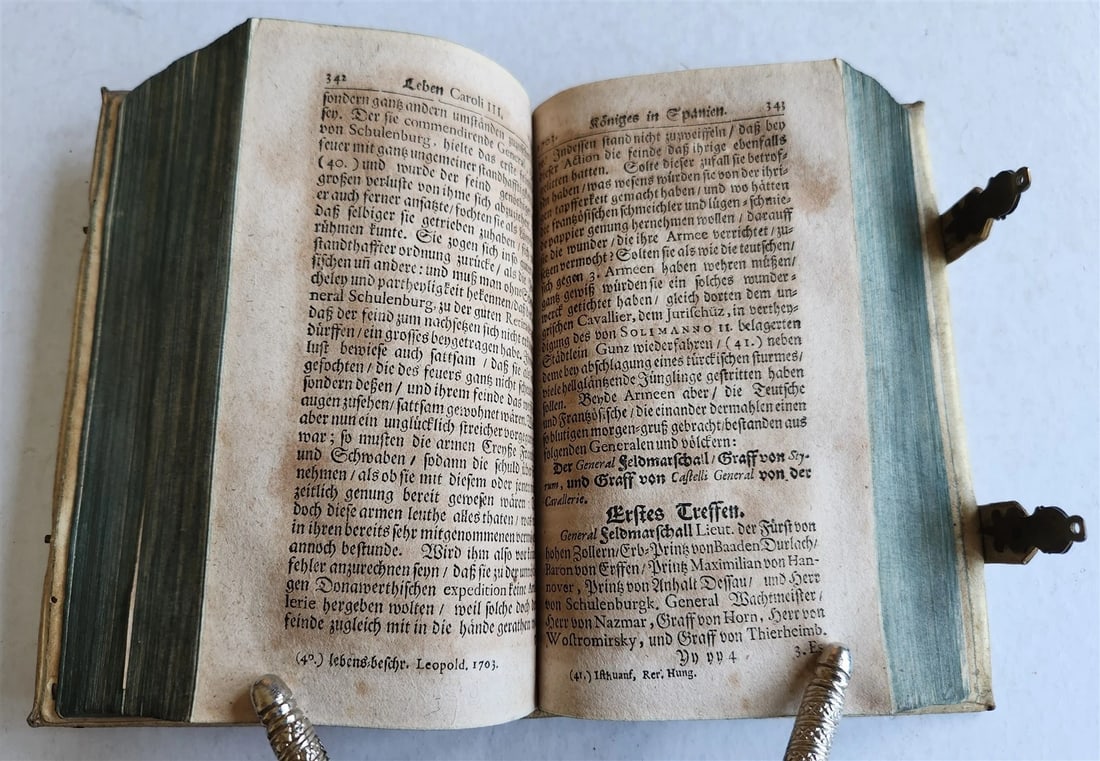 342 Leben Caroli III.
sondern gantz andern umständen
sey. Der sie commendirende General
von Schulenburg, hielte das erste
feuer mit gantz ungemeiner standhafftig
(40.) und wurde der feind
großen verluste von ihme sich
er auch ferner ansatzte / fochten sie als
daß selbiger sie getrieben zuhaben /
rühmen kunte. Sie zogen sich in so
standthaffter ordnung zurücke / als die
sischen uñ andere: und muß man ohne
cheley und partheyligkeit bekennen /
neral Schulenburg, zu der guten
daß der feind zum nachsetzen sich nicht
dürffen / ein grosses beygetragen habe.
lust bewiese auch sattsam / daß sie
gefochten / die des feuers gantz nicht
sondern deßen / und ihrem feinde das
augen zusehen / sattsam gewohnet wären.
aber nun ein unglücklich streicher
war; so musten die armen Creyße
und Schwaben / sodann die schuld
nehmen / als ob sie mit diesem oder
zeitlich genung bereit gewesen wären
Doch diese armen leuthe alles thaten /
in ihren bereits sehr mitgenommenen
annoch bestunde. Wird ihm also
fehler anzurechnen seyn / daß sie zu der
gen Donawerthischen expedition keine
lerie hergeben wolten / weil solche doch
feinde zugleich mit in die hände gerathen
(40.) lebens-beschr. Leopold. 1703.
Königes in Spanien. 343
Indessen stand nicht zuzweiffeln / daß bey
dieser Action die feinde daß ihrige ebenfalls
gelitten hatten. Solte dieser zufall sie betrof-
fen haben / was wesens würden sie von der ihri-
gen tapfferkeit gemacht haben / und wo hätten
die französischen schmeichler und lügen-schmie-
de pappier genung hernehmen wollen / darauff
sie die wunder / die ihre Armee verrichtet / zu-
setzen vermocht? Solten sie als wie die teutschen /
sich gegen 3. Armeen haben wehren müßen /
gantz gewiß würden sie ein solches wunder-
werck getichtet haben / gleich dorten dem un-
grischen Cavallier, dem Jurischüz, in verthey-
digung des von SOLIMANNO II. belagerten
Städtlein Gunz wiederfahren / (41.) neben
deme bey abschlagung eines türckischen sturmes /
viele hellgläntzende Jünglinge gestritten haben
sollen. Beyde Armeen aber / die Teutsche
und Frantzösische / die einander dermahlen einen
so blutigen morgen-gruß gebracht / bestanden aus
folgenden Generalen und völckern:
Der General Feldmarschall / Graff von Sty-
rum, und Graff von Castelli General von der
Cavallerie.
Erstes Treffen.
General Feldmarschall Lieut. der Fürst von
hohen Zollern / Erb-Prinz von Baaden Durlach /
Baron von Erffen / Printz Maximilian von Han-
nover, Printz von Anhalt Dessau / und Herr
von Schulenburgk. General Wachtmeister /
Herr von Nazmar, Graff von Horn, Herr von
Wostromirsky, und Graff von Thierheimb.
Yy yy 4 3. Es-
(41.) Isthuanf, Rer. Hung.